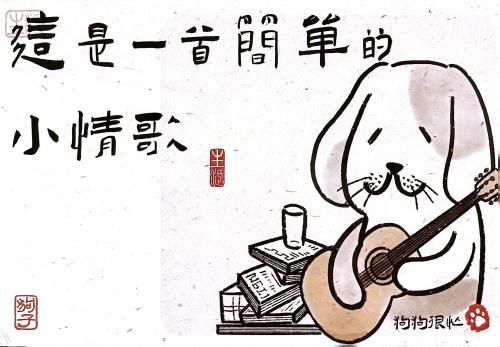 這是一首簡單的
小情歌
生活
狗子
狗狗很忙